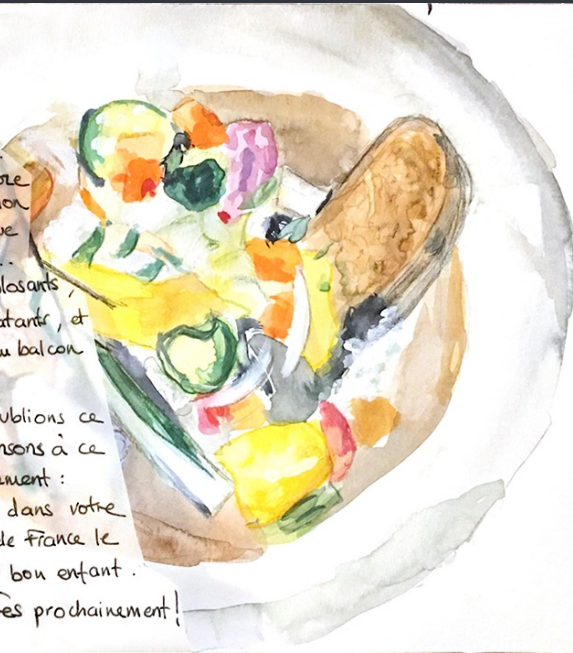 ion
ve
losants,
atants, et
au balcon
ublions ce
nsons à ce
ment :
dans votre
de France le
bon enfant.
ès prochainement!